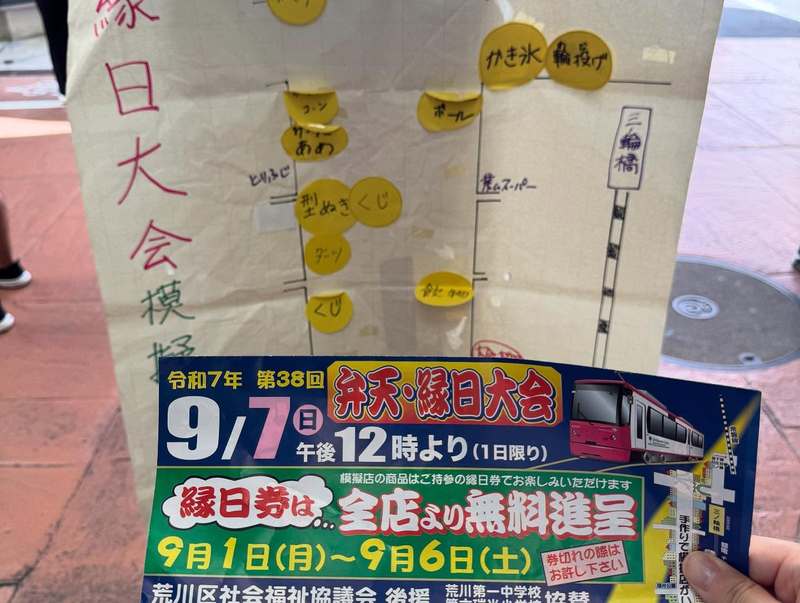 縁日大会
模擬
かき氷
輪投げ
コーン
ボール
あめ
とりふじ
型ぬき
くじ
ダーツ
くじ
三ノ輪橋
令和7年 第38回
弁天・縁日大会
9/7日
午後12時より(1日限り)
模擬店の商品はご持参の縁日券でお楽しみいただけます
縁日券は…全店より無料進呈
9月1日(月)～9月6日(土)
券切れの際はお許し下さい
荒川区社会福祉協議会 後援
荒川第一中学校
協賛
三ノ輪橋
手作りで